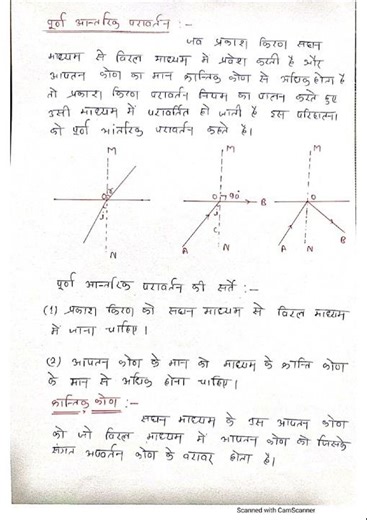 पूर्ण आन्तरिक परावर्तन :-
जब प्रकाश किरण सघन
माध्यम से विरल माध्यम में प्रवेश करती है और
आपतन कोण का मान क्रान्तिक कोण से अधिक होता है
तो प्रकाश किरण परावर्तन नियम का पालन करते हुए
उसी माध्यम में परावर्तित हो जाती है इस परिघटना
को पूर्ण आंतरिक परावर्तन कहते है।
M M M
O r O 90° B O
i i
C
N A N A N B
पूर्ण आन्तरिक परावर्तन की सर्ते :-
(1) प्रकाश किरण को सघन माध्यम से विरल माध्यम
में जाना चाहिए।
(2) आपतन कोण के मान को माध्यम के क्रान्ति कोण
के मान से अधिक होना चाहिए।
क्रान्तिक कोण :-
सघन माध्यम के उस आपतन कोण
को जो विरल माध्यम में आपतन कोण को जिसके
संगत अपवर्तन कोण के बराबर होता है।
Scanned with CamScanner